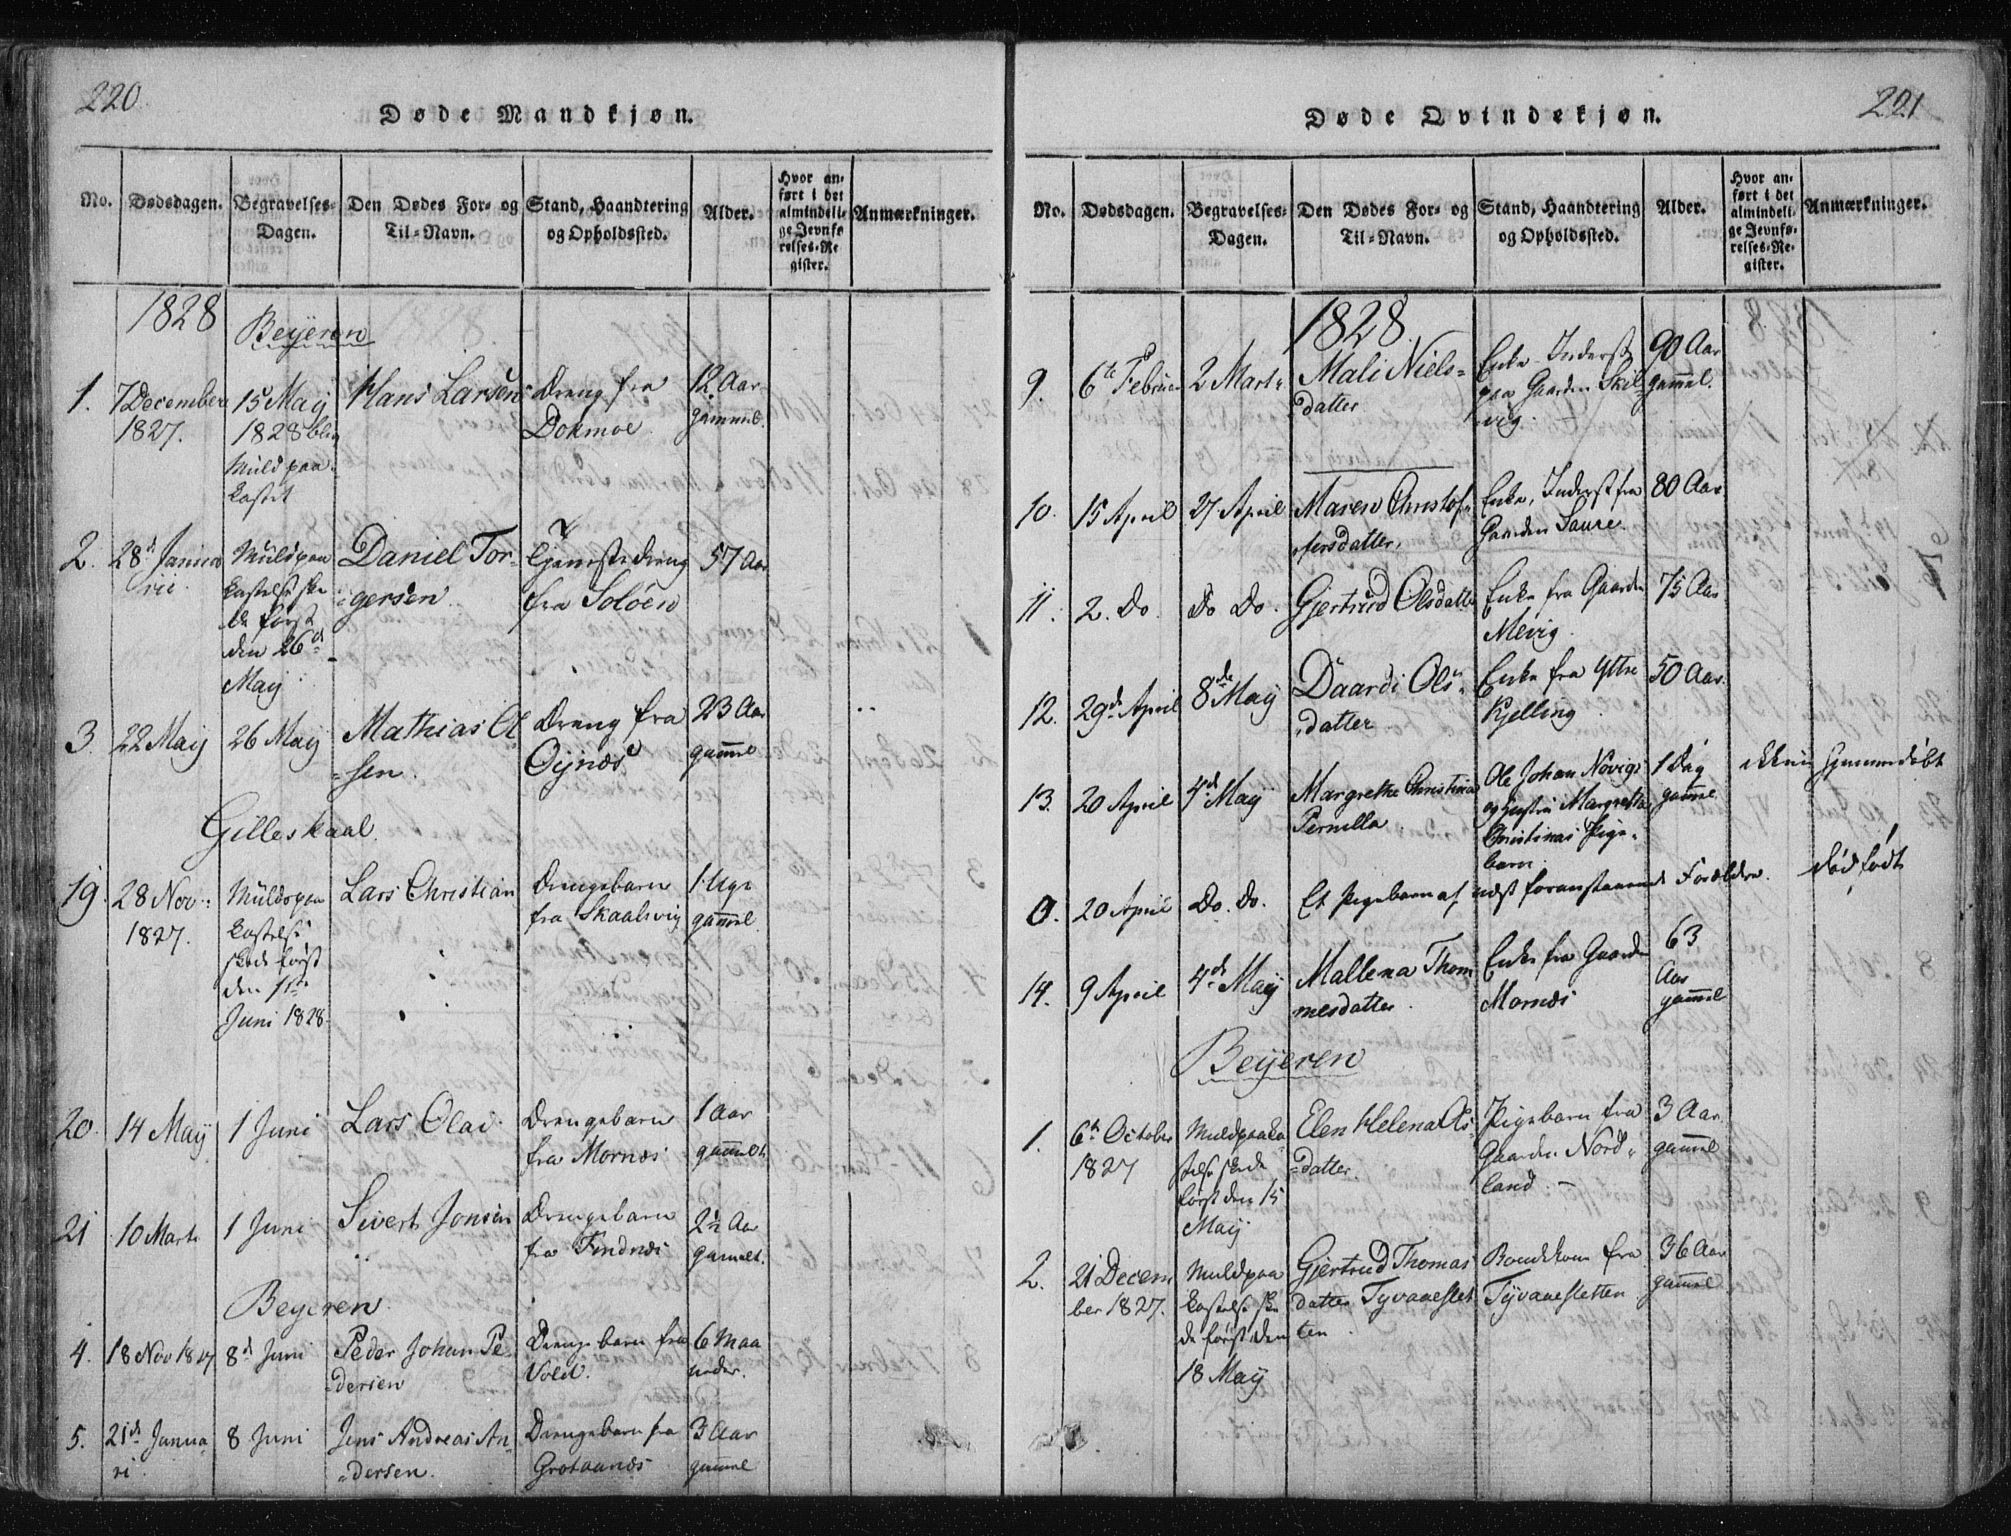 220.
Døde Mandkjøn.
No.
Dødsdagen.
Begravelses-
Dagen.
Den Dødes For- og
Til-Navn.
Stand, Haandtering
og Opholdssted.
Alder.
Hvor an-
ført i det
almindeli-
ge Jevnfø-
relses-Re-
gister.
Anmærkninger.
1828
Beyeren
1.
7 December
1827.
15 Maij
1828 blev
Muldpaa-
kastet
Hans Larsen
Dreng fra
Dokmoe
12 Aar
gammel.
2.
28de Janua
rii
Muldpaa
kastelse ske
de først
den 26de
Maij
Daniel Tor-
gersen
Tjenestedreng
fra Soløen
57 Aar
3.
22 Maij
26 Maij
Mathias Ol
-sen.
Dreng fra
Oijnæs
23 Aar
gammel
Gilleskaal.
19.
28 Nov:
1827.
Muldspaa
kastelse
skede først
den 1ste
Juni 1828
Lars Christian
Drengebarn
fra Skaalsvig
1 Uge
gammel.
20.
14 Maij
1 Juni
Lars Olai
Drengebarn
fra Mornæs
1 Aar
gammelt
21
10 Marts
1 Juni
Sivert Jonsen
Drengebarn
fra Findnæs
2½ Aar
gammelt.
Beyeren
4.
18 Nov 1827
8de Juni
Peder Johan Pe
-dersen
Drengebarn fra
Vold.
6 Maa
neder.
5.
21de Janua
ri.
8 Juni
Jens Andreas An-
dersen.
Drengebarn fra
Grotaanæs
3 Aar
gammel
221
Døde Qvindekjøn.
No.
Dødsdagen.
Begravelses-
Dagen.
Den Dødes For- og
Til-Navn.
Stand, Haandtering
og Opholdssted.
Alder.
Hvor an-
ført i det
almindeli-
ge Jevnfø-
relses-Re-
gister.
Anmærkninger.
1828.
9.
6te Februar
2 Marts
Mali Niels-
datter
Enke Inderst
paa Gaarden Skil
vig.
90 Aar
gammel.
10.
15 April
27 April
Maren Christof-
fersdatter,
Enke, Inderst fra
Gaarden Saure.
80 Aar
11.
2. Do.
Do Do.
Gjertrud Olsdatter
Enke fra Gaarden
Mevig.
75 Aar
12.
29de April
8de Maij
Daardi Ols-
datter
Enke fra Yttre
Kjelling
50 Aar.
13.
20 April
4de Maij
Margrethe Christina
Pernilla.
Ole Johan Novigs
og Hustru Margretha
Christinas Pige-
barn.
1 Dag
gammel
Hjemmedøbt
0.
20 April
Do. Do.
Et Pigebarn af næst foranstaaende Forældre.
dødfødt
14.
9 April
4de Maij
Mallena Thom
mesdatter
Enke fra Gaarden
Mornæs
63
Aar
gammel
Beyeren
1.
6te October
1827
Muldpaaka
stelse skede
først den 15
Maij
Elen Helena Ols
-datter.
Pigebarn fra
Gaarden Nord-
land
3 Aar
gammel
2.
21 Decem
ber 1827.
Muldpaa
kastelse ske
de først den
18 Maij
Gjertrud Thomas
datter Tyvaaeslet
ten
Bondekone fra
Tyvaaesletten
36 Aar
gammel